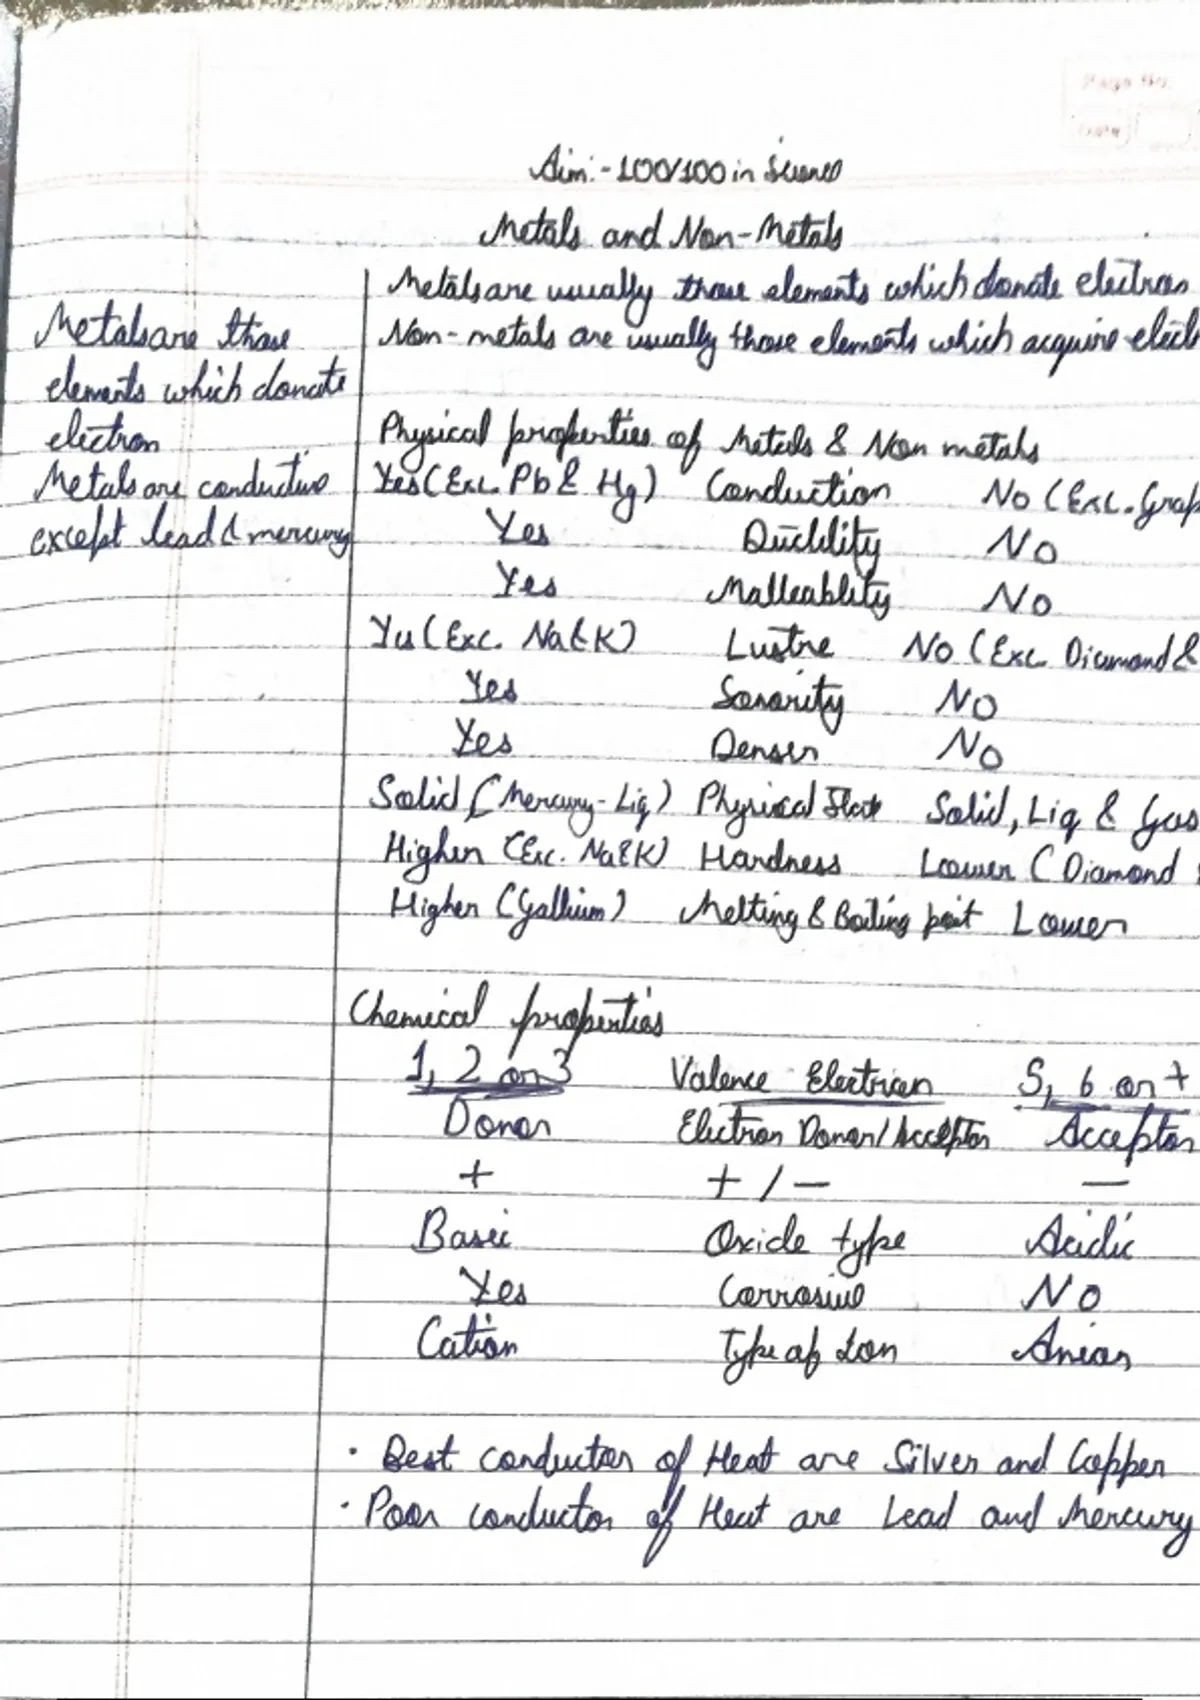 Page No.
Date
Aim:-100/100 in Science
Metals and Non-Metals
Metals are usually those elements which donate electron
Non-metals are usually those elements which acquire elect
Metals are those
elements which donate
electron
Metals are conductive
except lead & mercury
Physical properties of Metals & Non metals
Yes (Exc. Pb & Hg) Conduction No (Exc. Grap
Yes Ductility No
Yes Malleablity No
Yes (Exc. Na & K) Lustre No (Exc. Diamond &
Yes Sonority No
Yes Denser No
Solid (Mercury-Liq) Physical State Solid, Liq & Gas
Higher (Exc. Na & K) Hardness Lower (Diamond
Higher (Gallium) Melting & Boiling point Lower
Chemical properties
1, 2 or 3 Valence Electron 5, 6 or 7
Donor Electron Donor/Acceptor Acceptor
+ +/- -
Basic Oxide type Acidic
Yes Corrosive No
Cation Type of Ion Anion
· Best conductor of Heat are Silver and Copper
· Poor conductor of Heat are Lead and Mercury